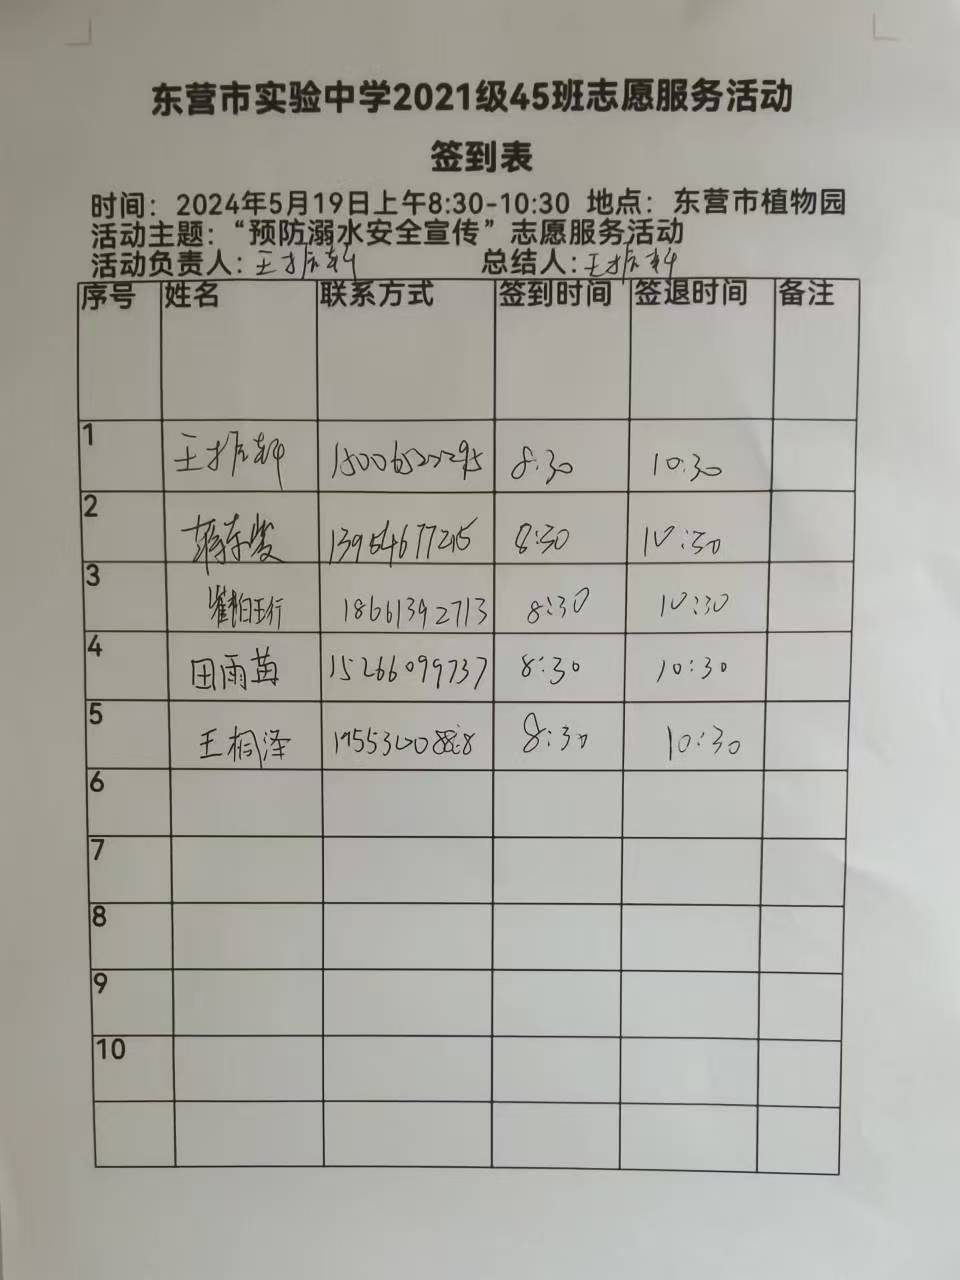 东营市实验中学2021级45班志愿服务活动
签到表
时间：2024年5月19日上午8:30-10:30 地点：东营市植物园
活动主题：“预防溺水安全宣传”志愿服务活动
活动负责人：王振轩 总结人：王振轩
序号 姓名 联系方式 签到时间 签退时间 备注
1 王振轩 8:30 10:30
2 蒋东俊 8:30 10:30
3 18661392713 8:30 10:30
4 田雨苒 15266099737 8:30 10:30
5 王桐泽 8:30 10:30
6
7
8
9
10